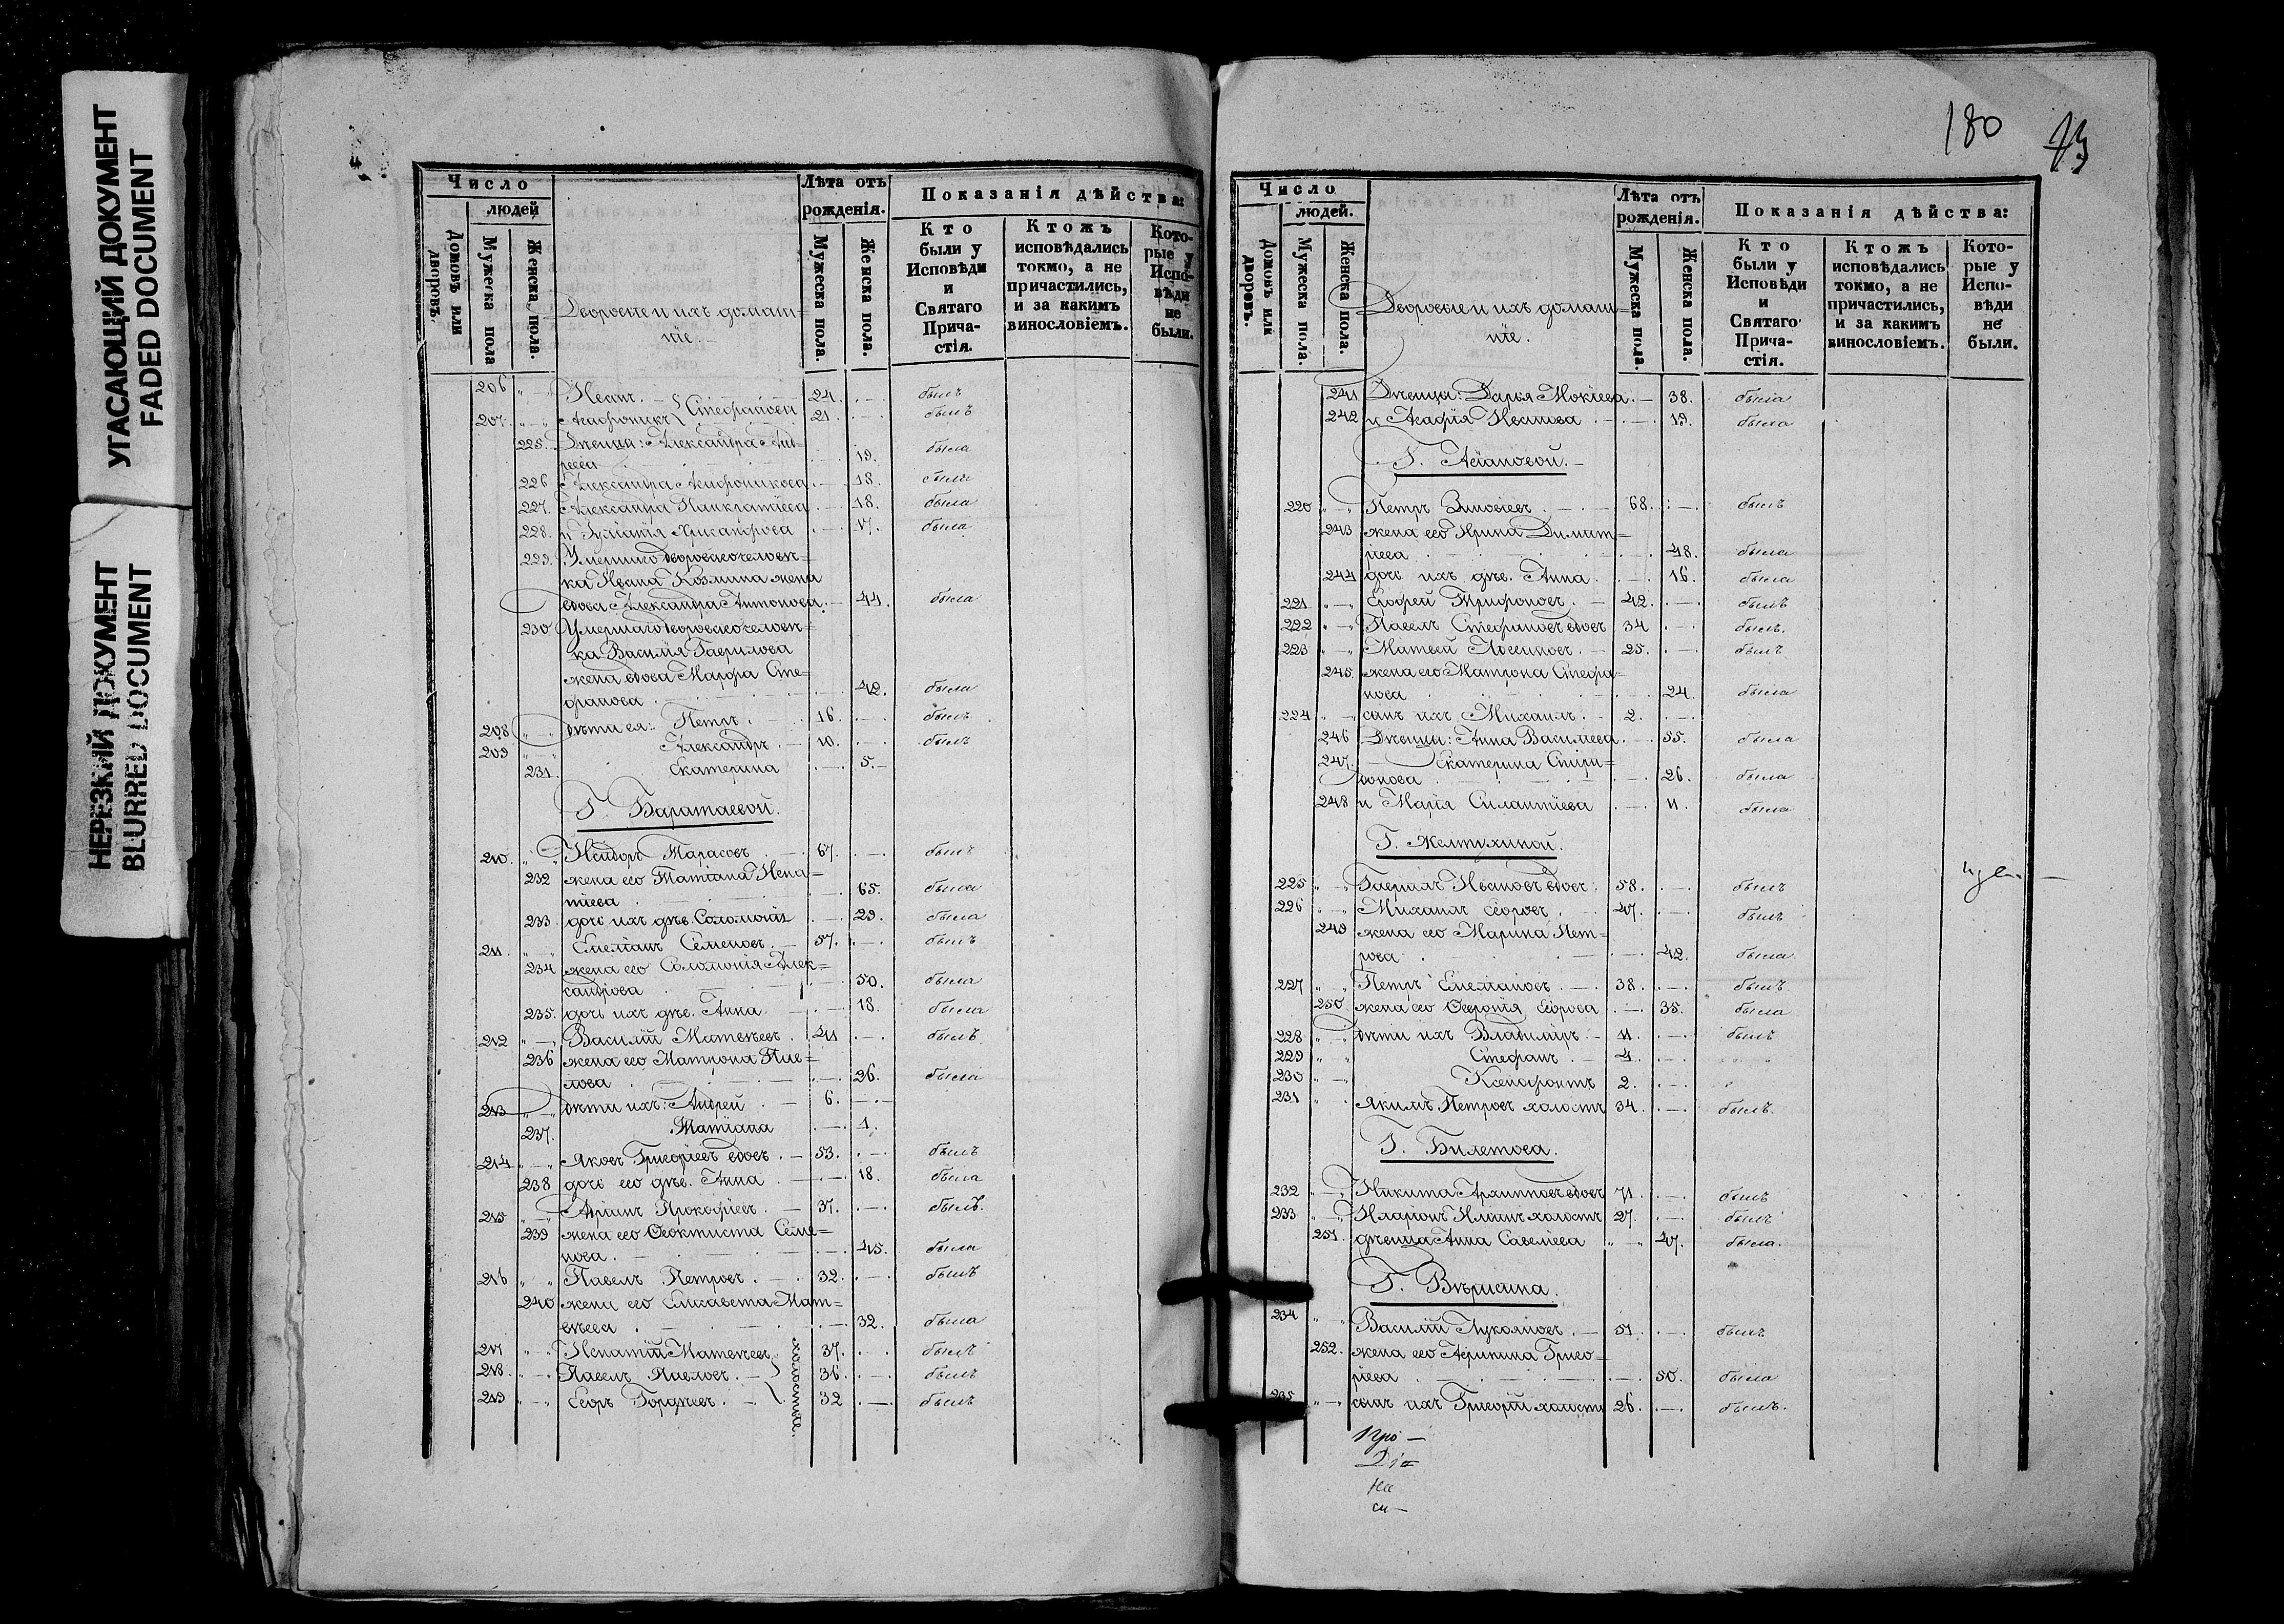 УГАСАЮЩИЙ ДОКУМЕНТ
FADED DOCUMENT
НЕРЕЗКИЙ ДОКУМЕНТ
BLURRED DOCUMENT
Число
людей
Домовъ или дворовъ.
Мужеска пола
Женска пола.
Дворовые и ихъ домаш=
нїе.
Лѣта отъ рожденія.
Мужеска пола.
Женска пола.
Показанія дѣйства:
Кто были у Исповѣди и Святаго Прича-стія.
Ктожъ исповѣдались токмо, а не причастились, и за какимъ винословіемъ.
Кото-рые у Испо-вѣди не были.
206 „ — „ Иванъ 24. былъ
207. „ — „ Агафоникъ } Стефановы 21. былъ
225. Дѣвицы: Александра Анд=
реева 19. была
226 Александра Агафоникова 18. была
227. Александра Панкратіева 18. была
228. и Никанорова 17. была
229. Умершаго двороваго человѣ=
ка Ивана Козмина жена
вдова Александра Антонова 44. была
230 Умершаго двороваго человѣ=
ка Василія Гаврилова
жена вдова Марфа Сте=
фанова 42. была
208 „ — „ дѣти ея: Петръ 16. былъ
209 „ „ Александръ 10. былъ
231. Екатерина 5.
Г. Баратаевой.
210. „ — „ Исидоръ Тарасовъ 67. былъ
232 жена его Татіана Игна=
тіева 65. была
233. дочь ихъ дѣв. Соломонія 29. была
211. „ — „ Емеліанъ Семеновъ 57. былъ
234 жена его Соломонія Алек=
сандрова 50. была
235. дочь ихъ дѣв. Анна 18. была
212 „ — „ Василій Матвѣевъ 41 былъ
236 жена его Матрона Пав=
лова 26. была
213 „ — „ дѣти ихъ: Андрей 6.
237. Татіана 1.
214 „ — „ Яковъ Григорьевъ вдовъ 53. былъ
238 дочь его дѣв. Анна 18. была
215 „ — „ Адріанъ Прокофіевъ 37. былъ.
239 жена его Ѳеоктиста Семе=
нова 45. была
216 „ „ Павелъ Петровъ 32. былъ
240 жена его Елисавета Мат=
вѣева 32. была
217 „ — „ Игнатій Матвѣевъ 37. былъ
218. „ — „ Павелъ Павловъ 36. былъ
219 „ — „ Егоръ Гордѣевъ } холостые. 32 былъ
180
73
Число
людей.
Домовъ или дворовъ.
Мужеска пола.
Женска пола.
Дворовые и ихъ домаш=
нїе.
Лѣта отъ рожденія.
Мужеска пола.
Женска пола.
Показанія дѣйства:
Кто были у Исповѣди и Святаго Прича-стія.
Ктожъ исповѣдались токмо, а не причастились, и за какимъ винословіемъ.
Кото-рые у Испо-вѣди не были.
241 Дѣвицы: Дарья Мокіева 38. была
242 и Агафія Иванова 19. была
Г. Асановой.
220 „ — „ Петръ Зиновіевъ 68. былъ
243 жена его Ирина Димит=
ріева 48. была
244 дочь ихъ дѣв. Анна 16. была
221 „ — „ Ерофей Трифоновъ 42. былъ
222 „ — „ Павелъ Стефановъ вдовъ 34 былъ.
223 „ — „ Матвей 25. былъ
245. жена его Матрона Стефа=
нова 24. была
224 „ — сынъ ихъ Михаилъ 2.
246 Дѣвицы: Анна Василіева 55. была
247. Екатерина Спири=
донова 26. была
248 и Марія Силантіева 11. была
Г. Желтухиной.
225 „ — „ Гавріилъ Ивановъ вдовъ 58. былъ
226 „ — „ Михаилъ Егоровъ 47. былъ
249 жена его Марина Пет=
рова 42. была
227 „ „ Петръ Емеліановъ 38. былъ
250 жена его Ѳефронія Егорова 35. была
228 „ — „ дѣти ихъ Владиміръ 11. былъ
229 „ „ Стефанъ 4.
230 „ — „ Ксенофонтъ 2.
231 „ Якимъ Петровъ холостъ 34. былъ.
Г. Билетова.
232 „ — „ Никита Архиповъ вдовъ 71. былъ
233 „ — „ Иларіонъ Ильинъ холостъ 27. былъ
251. дѣвица Анна Савеліева „ — „ 47. была.
Г. Вѣрисина.
234 „ „ Василій Лукояновъ 51. былъ
252. жена его Агрипина Григо=
ріева 50. была
235 „ — „ сынъ ихъ Григорій холостъ 26. былъ.